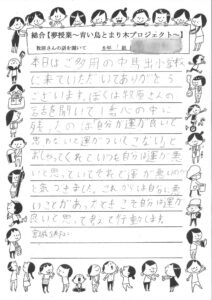 総合【夢授業～青い鳥とまり木プロジェクト～】
牧原さんの話を聞いて 5年 組
本日はご多用の中馬出小学校
に来ていただいてありがとう
ございます。ぼくは牧原さんの
名言を聞いて1番心の中に
残ったのは自分が運が良いと
思わないと運がついてこないと
おしゃってくれていつも自分は運が悪
いと思っていてそれで運が悪いのだ
と気づきました。これからは自分に悪
いことがあってもこそ自分は運が
良いと思って考えて行動します。